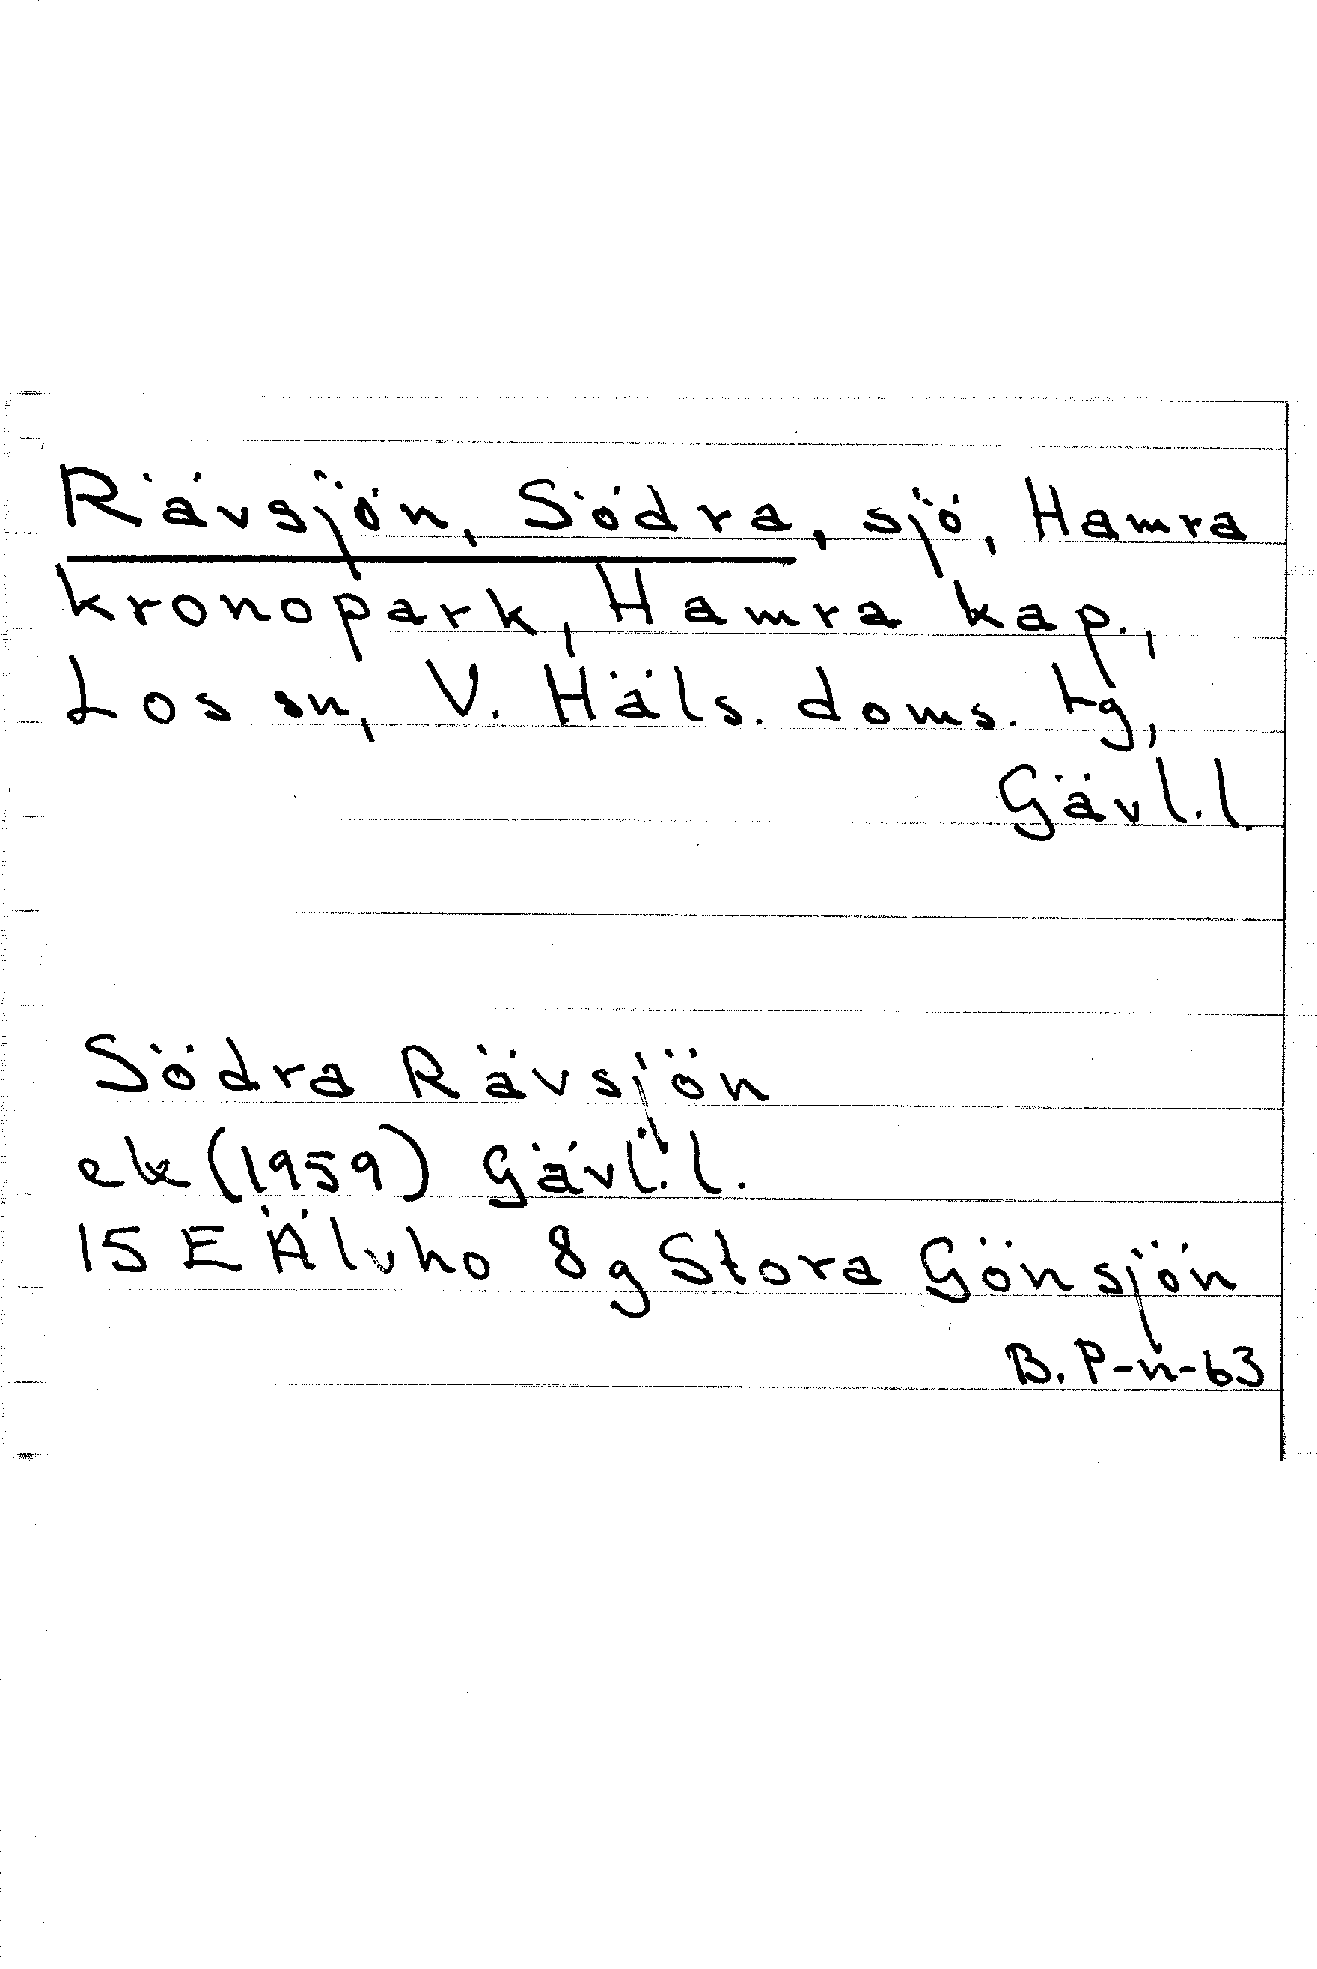 Rävsjön, Södra, sjö, Hamra
kronopark, Hamra kap.,
Los sn, V. Häls. doms. tg,
Gävl.l.
Södra Rävsjön
ek (1959) Gävl.l.
15 E Älvho 8g Stora Gönsjön
B. P-n-63